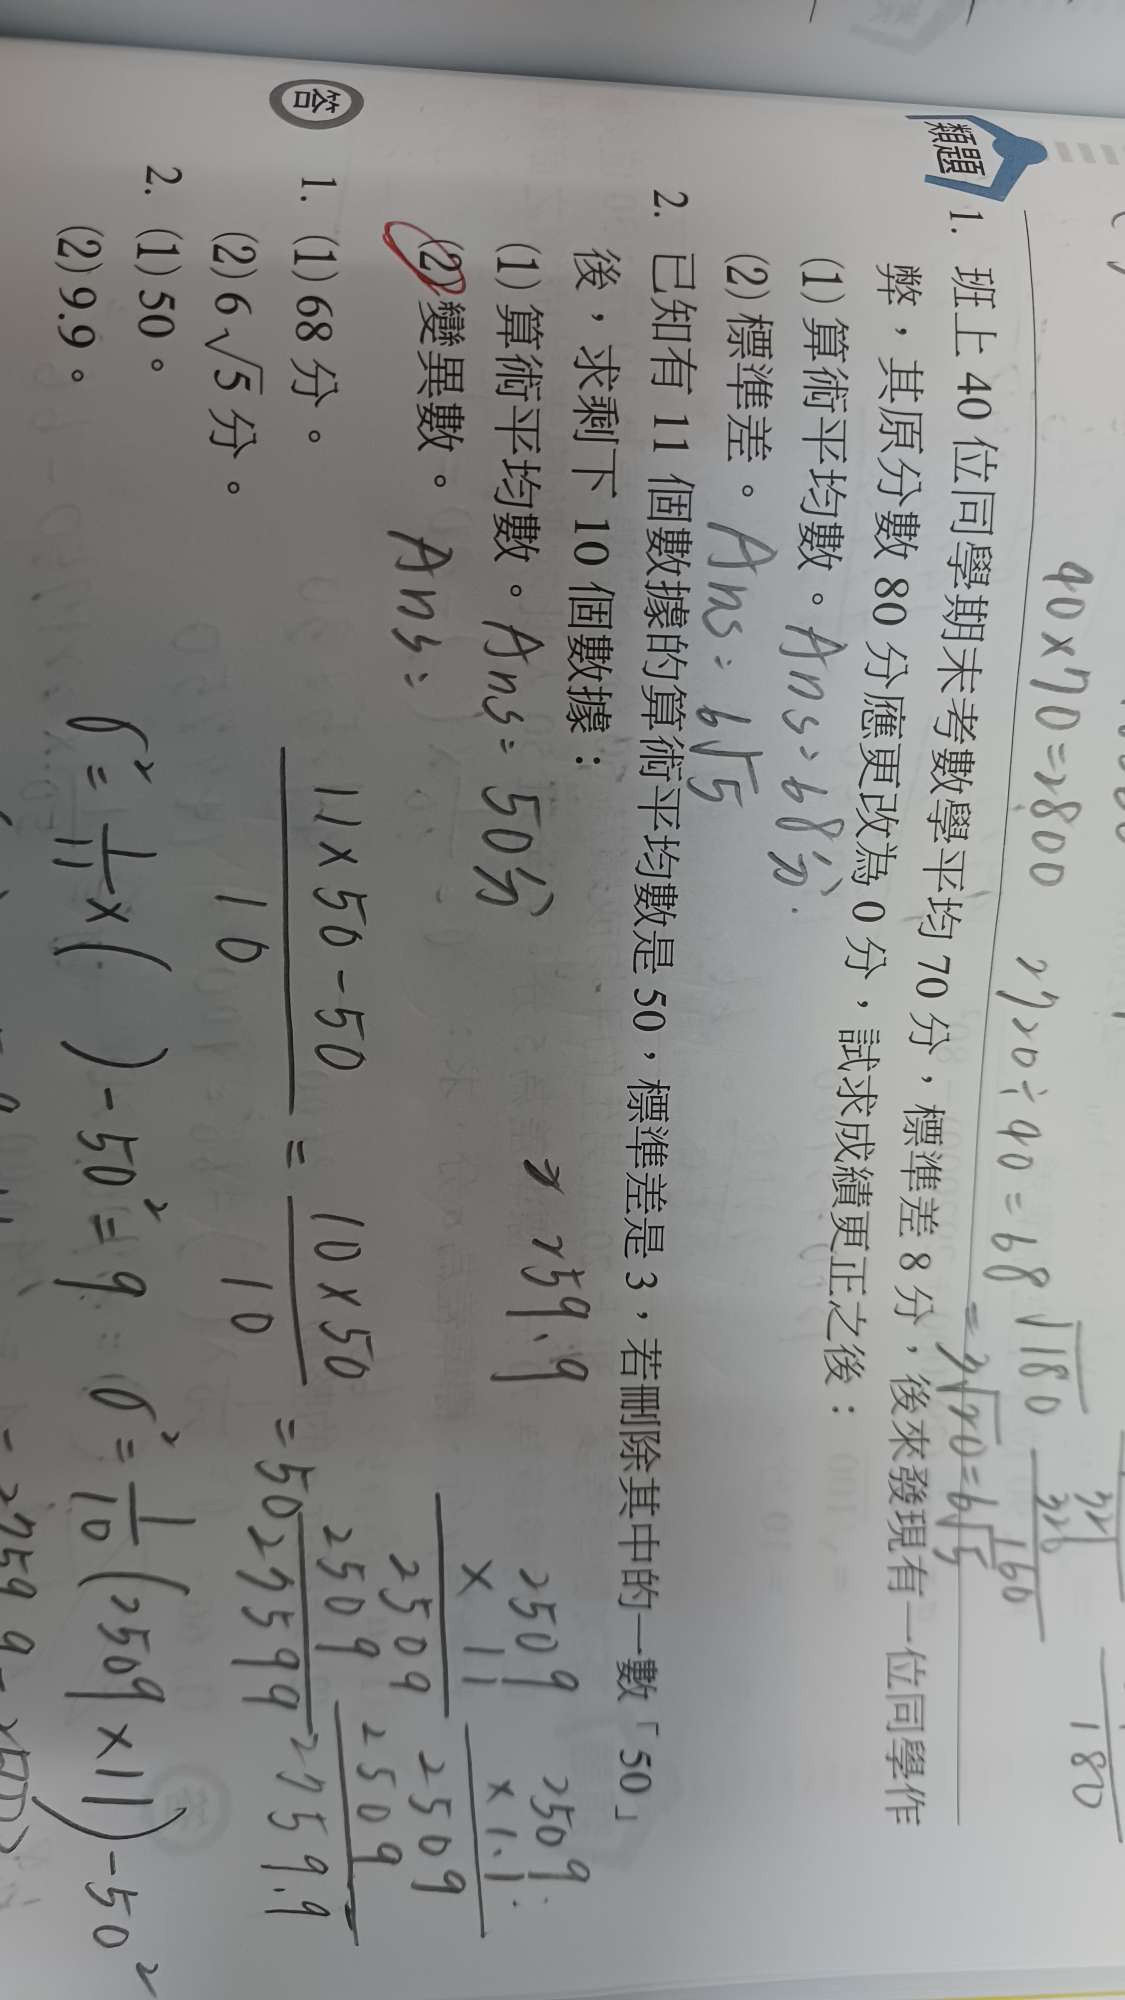 40×70=2800 2720÷40=68 √180
=3√20=6√5
180
類題
1. 班上 40 位同學期末考數學平均 70 分，標準差 8 分，後來發現有一位同學作
弊，其原分數 80 分應更改為 0 分，試求成績更正之後：
(1) 算術平均數。Ans：68分.
(2) 標準差。Ans：6√5
2. 已知有 11 個數據的算術平均數是 50，標準差是 3，若刪除其中的一數「50」
後，求剩下 10 個數據：
(1) 算術平均數。Ans：50分
259.9
(2) 變異數。Ans：
11×50-50 / 10 = 10×50 / 10 = 50
2509
× 11
2509
2509
27599
2509
×1.1
2509
2509
2759.9
σ²=1/11×( )-50²=9 σ²=1/10(2509×11)-50²
答
1. (1) 68 分。
(2) 6√5 分。
2. (1) 50。
(2) 9.9。